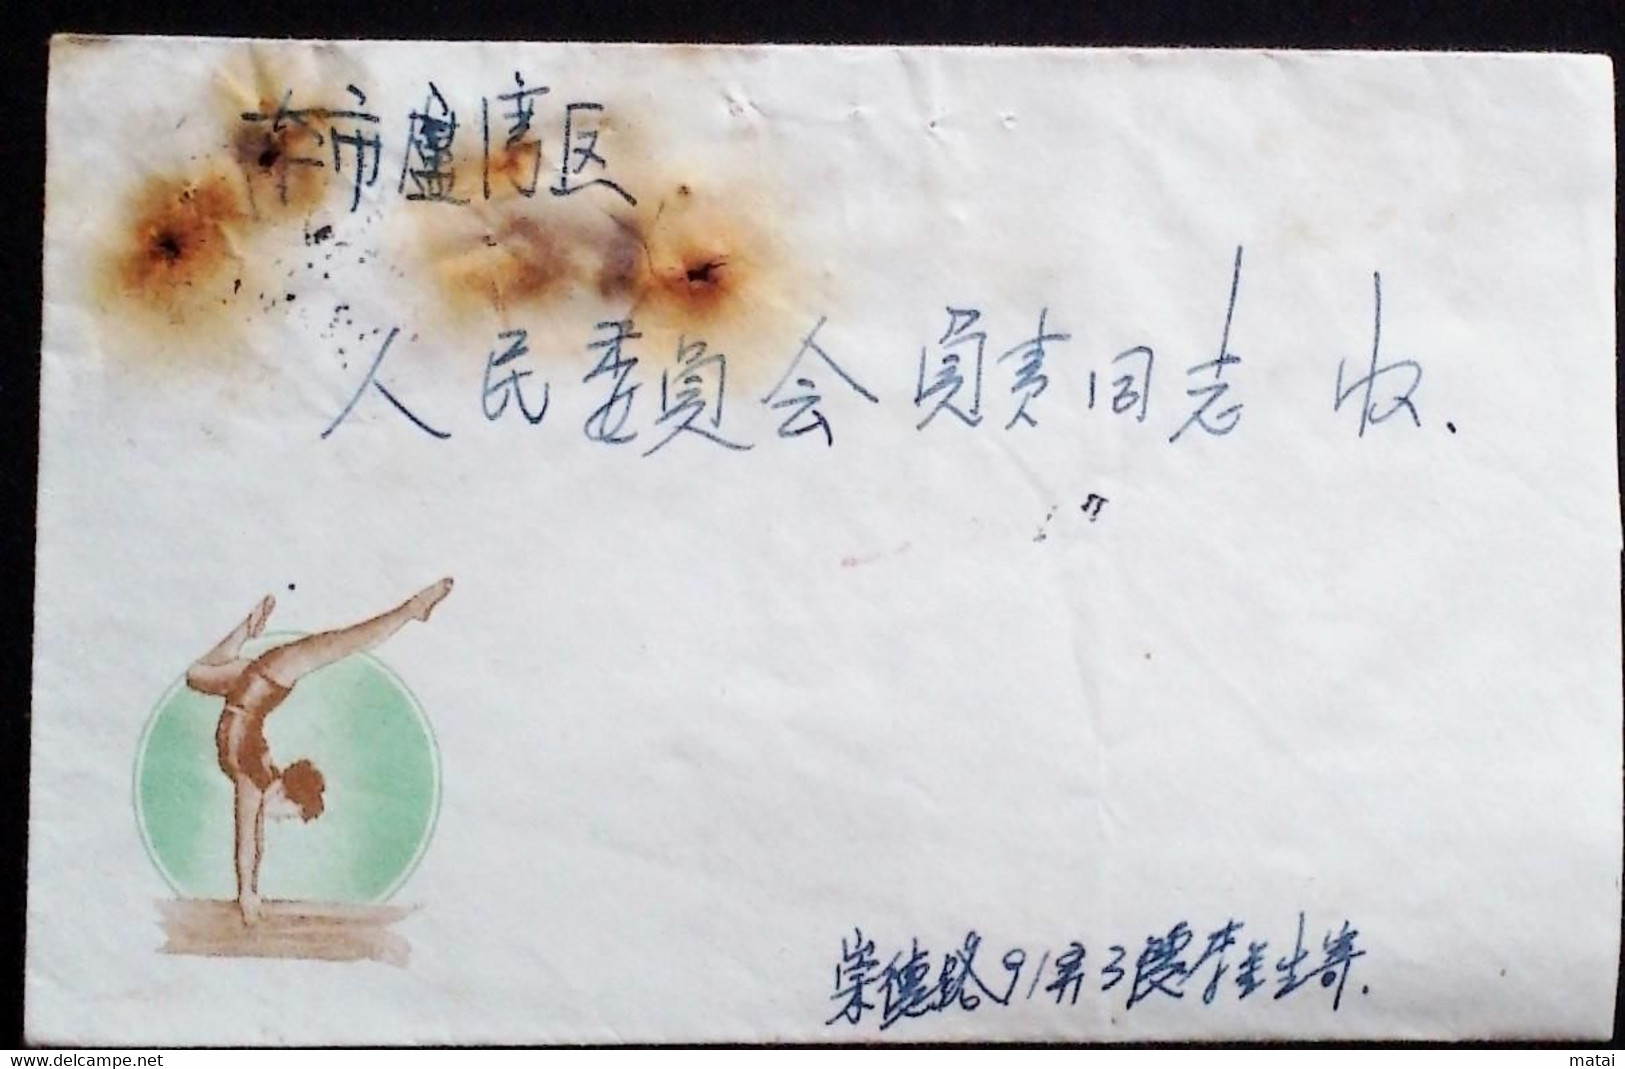 本市盧湾区
人民委員会 負责同志 收.
崇德路91弄3号李金生寄.
www.delcampe.net
matai